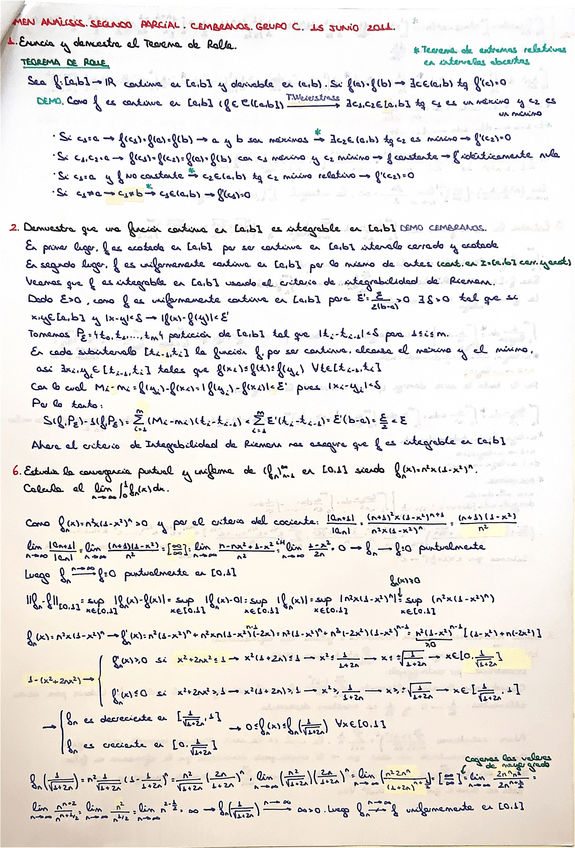 MEN ANÁLISIS. SEGUNDO PARCIAL. CEMBRANOS. GRUPO C. 15 JUNIO 2011.
1. Enuncia y demuestra el Teorema de Rolle.
* Teorema de extremos relativos
en intervalos abiertos
TEOREMA DE ROLLE
Sea f:[a,b]→ℝ continua en [a,b] y derivable en (a,b). Si f(a)=f(b) → ∃c∈(a,b) tq f'(c)=0
DEMO. Como f es continua en [a,b] (f∈C([a,b])) TWeierstrass → ∃c₁,c₂∈[a,b] tq c₁ es un máximo y c₂ es
un mínimo
· Si c₁=a → f(c₁)=f(a)=f(b) → a y b son máximos →* ∃c₂∈(a,b) tq c₂ es mínimo → f'(c₂)=0
· Si c₁,c₂=a → f(c₁)=f(c₂)=f(a)=f(b) con c₁ máximo y c₂ mínimo → f constante → f idénticamente nula
· Si c₁=a y f no constante →* c₂∈(a,b) tq c₂ mínimo relativo → f'(c₂)=0
· Si c₁≠a → c₁≠b →* c₁∈(a,b) → f'(c₁)=0
2. Demuestra que una función continua en [a,b] es integrable en [a,b] DEMO CEMBRANOS.
En primer lugar, f es acotada en [a,b] por ser continua en [a,b] intervalo cerrado y acotado
En segundo lugar, f es uniformemente continua en [a,b] por lo mismo de antes (cont. en I=[a,b] cerr. y acot)
Veamos que f es integrable en [a,b] usando el criterio de integrabilidad de Riemann.
Dado ε>0, como f es uniformemente continua en [a,b] para ε'=ε/2(b-a)>0 ∃δ>0 tal que si
x,y∈[a,b] y |x-y|<δ → |f(x)-f(y)|<ε'
Tomemos Pε={t₀,t₁,...,tm} partición de [a,b] tal que |ti-ti-1|<δ para 1≤i≤m.
En cada subintervalo [ti-1,ti] la función f, por ser continua, alcanza el máximo y el mínimo,
así ∃xi,yi∈[ti-1,ti] tales que f(xi)≤f(t)≤f(yi) ∀t∈[ti-1,ti]
Con lo cual Mi-mi=f(yi)-f(xi)=|f(yi)-f(xi)|<ε' pues |xi-yi|<δ
Por lo tanto:
S(f,Pε)-s(f,Pε)=∑(Mi-mi)(ti-ti-1)<∑ε'(ti-ti-1)=ε'(b-a)=ε/2<ε
Ahora el criterio de Integrabilidad de Riemann nos asegura que f es integrable en [a,b]
6. Estudia la convergencia puntual y uniforme de (fn)∞n=1 en [0,1] siendo fn(x)=n²x(1-x²)ⁿ.
Calcula el lim n→∞ ∫₀¹ fn(x)dx.
Como fn(x)=n²x(1-x²)ⁿ>0 y por el criterio del cociente: |an+1|/|an| = (n+1)²x(1-x²)ⁿ⁺¹/n²x(1-x²)ⁿ = (n+1)(1-x²)/n²
lim n→∞ |an+1|/|an| = lim n→∞ (n+1)(1-x²)/n² = [∞/∞] = lim n→∞ n-nx²+1-x²/n² =L'H lim n→∞ 1-x²/2n = 0 → fn→f=0 puntualmente
Luego fn n→∞→ f=0 puntualmente en [0,1]
fn(x)≥0
||fn-f||[0,1] = sup x∈[0,1] |fn(x)-f(x)| = sup x∈[0,1] |fn(x)-0| = sup x∈[0,1] |fn(x)| = sup x∈[0,1] |n²x(1-x²)ⁿ| = sup x∈[0,1] (n²x(1-x²)ⁿ)
fn(x)=n²x(1-x²)ⁿ → f'n(x)=n²(1-x²)ⁿ+n²xn(1-x²)ⁿ⁻¹(-2x)=n²(1-x²)ⁿ+n³(-2x²)(1-x²)ⁿ⁻¹=n²(1-x²)ⁿ⁻¹[(1-x²)+n(-2x²)]
≥0
1-(x²+2nx²) → f'n(x)≥0 si x²+2nx²≤1 → x²(1+2n)≤1 → x²≤1/1+2n → x≤√1/1+2n → x∈[0,1/√1+2n]
f'n(x)≤0 si x²+2nx²≥1 → x²(1+2n)≥1 → x²≥1/1+2n → x≥√1/1+2n → x∈[1/√1+2n,1]
→ fn es decreciente en [1/√1+2n,1] → 0≤fn(x)≤fn(1/√1+2n) ∀x∈[0,1]
fn es creciente en [0,1/√1+2n]
Cogemos los valores
de mayor grado
fn(1/√1+2n)=n² 1/√1+2n (1-1/1+2n)ⁿ=n²/√1+2n (2n/1+2n)ⁿ, lim n→∞ (n²/√1+2n)(2n/1+2n)ⁿ = lim n→∞ (n²2nⁿ/(1+2n)ⁿ⁺½) = [∞/∞] = lim n→∞ 2nⁿn²/2nⁿ⁺½ =
lim n→∞ nⁿ⁺²/nⁿ⁺¹/² = lim n→∞ n²/n¹/² = lim n→∞ n²⁻½ = ∞ → fn(1/√1+2n) n→∞→ ∞>0. Luego fn n→∞↛ f uniformemente en [0,1]